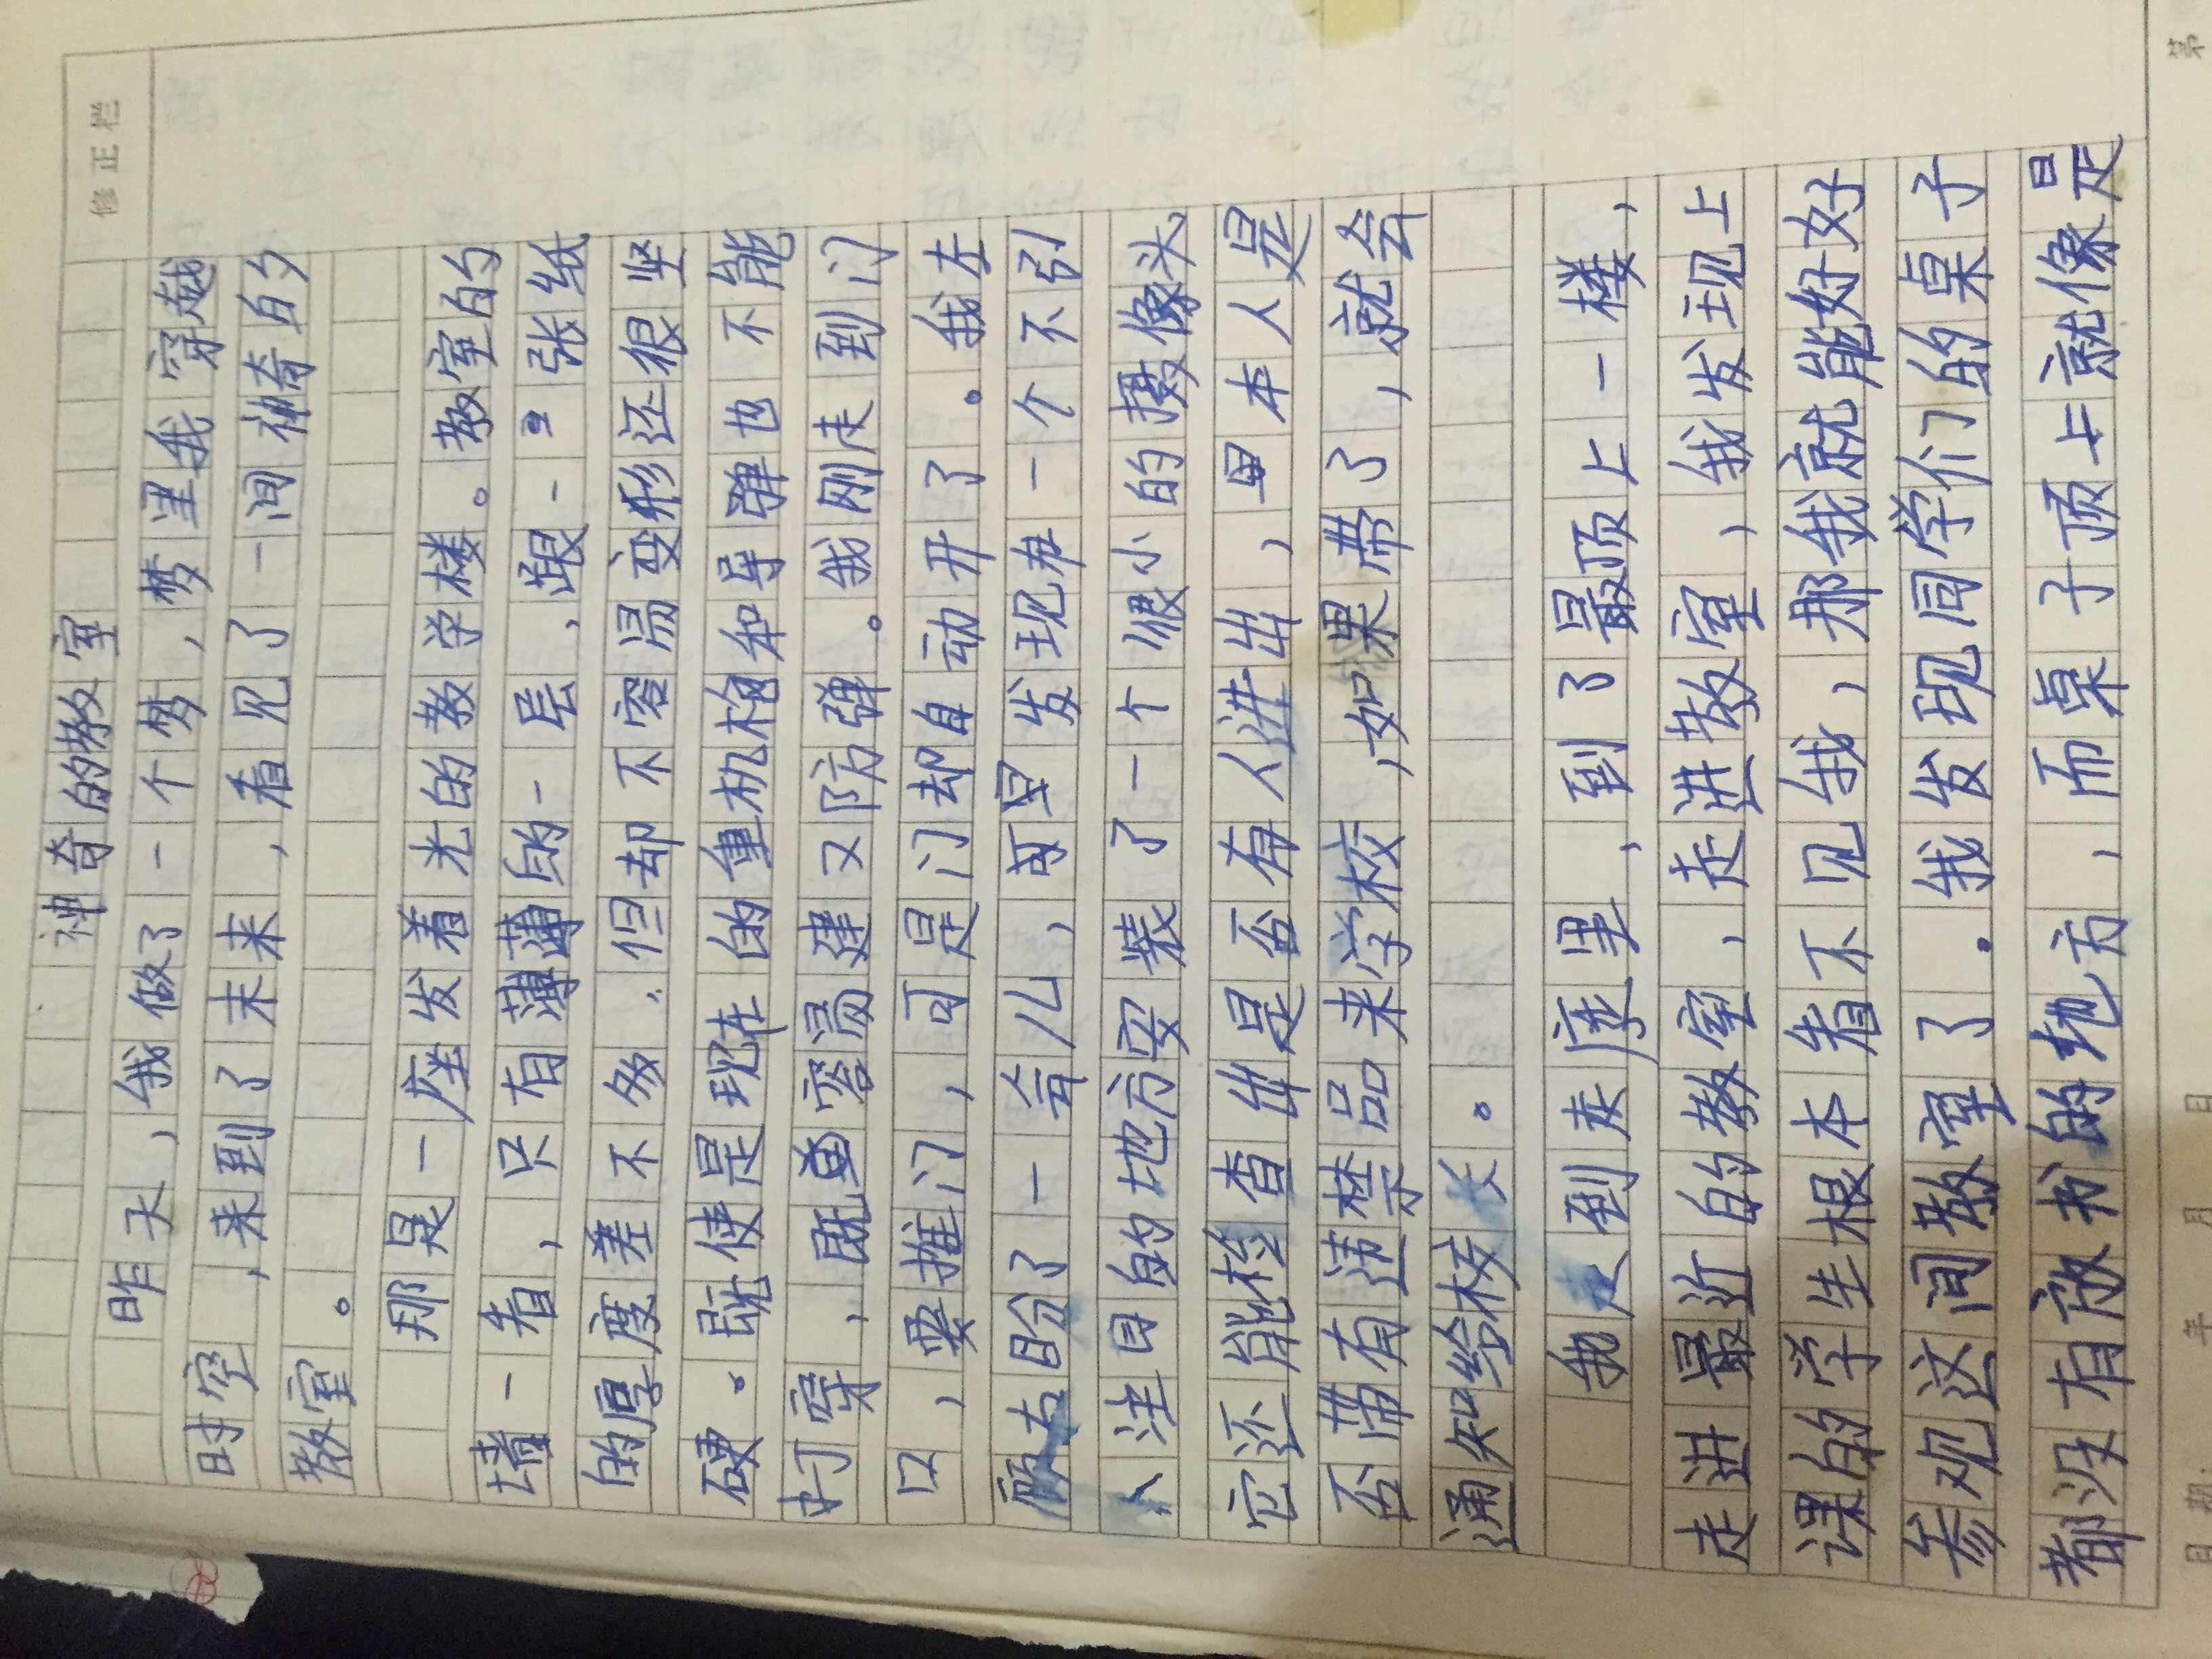 修正栏
神奇的教室
昨天,我做了一个梦,梦里我穿越
时空,来到了未来,看见了一间神奇的
教室。
那是一座发着光的教学楼。教室的
墙一看,只有薄薄的一层,跟一张纸
的厚度差不多,但却不容易变形还很坚
硬。既使是现在的重机枪和导弹也不能
打穿,既容易建又防弹。我刚走到门
口,要推门,可是门却自动开了。我左
顾右盼了一会儿,可发现在一个不引
人注目的地方安装了一个很小的摄像头
它还能检查出是否有人进出,本人是
否带有违禁品来学校,如果带了,就会
通知给校长。
我到走座里,到了最顶上一楼,
走进最近的教室,走进教室,我发现上
课的学生根本看不见我,那我就能好好
参观这间教室了。我发现同学们的桌子
都没有放书的地方,而桌子顶上就像是
第
日期: 年 月 日